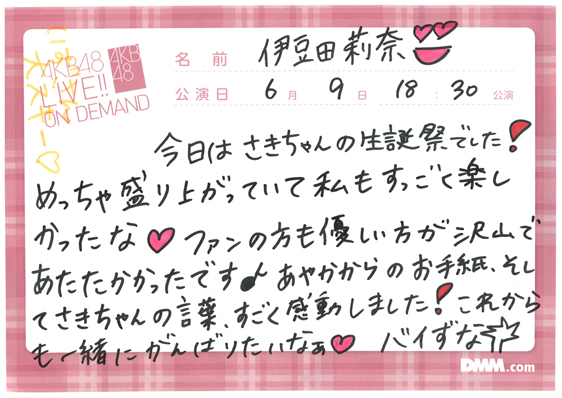 AKB48
LIVE!!
ON DEMAND
AKB
48
名前 伊豆田莉奈
公演日 6月 9日 18:30 公演
今日はさきちゃんの生誕祭でした!
めっちゃ盛り上がっていて私もすっごく楽し
かったな♥ ファンの方も優しい方が沢山で
あたたかかったです♪ あやかからのお手紙、そし
てさきちゃんの言葉、すごく感動しました!これから
も一緒にがんばりたいなぁ♥ バイずな
DMM.com